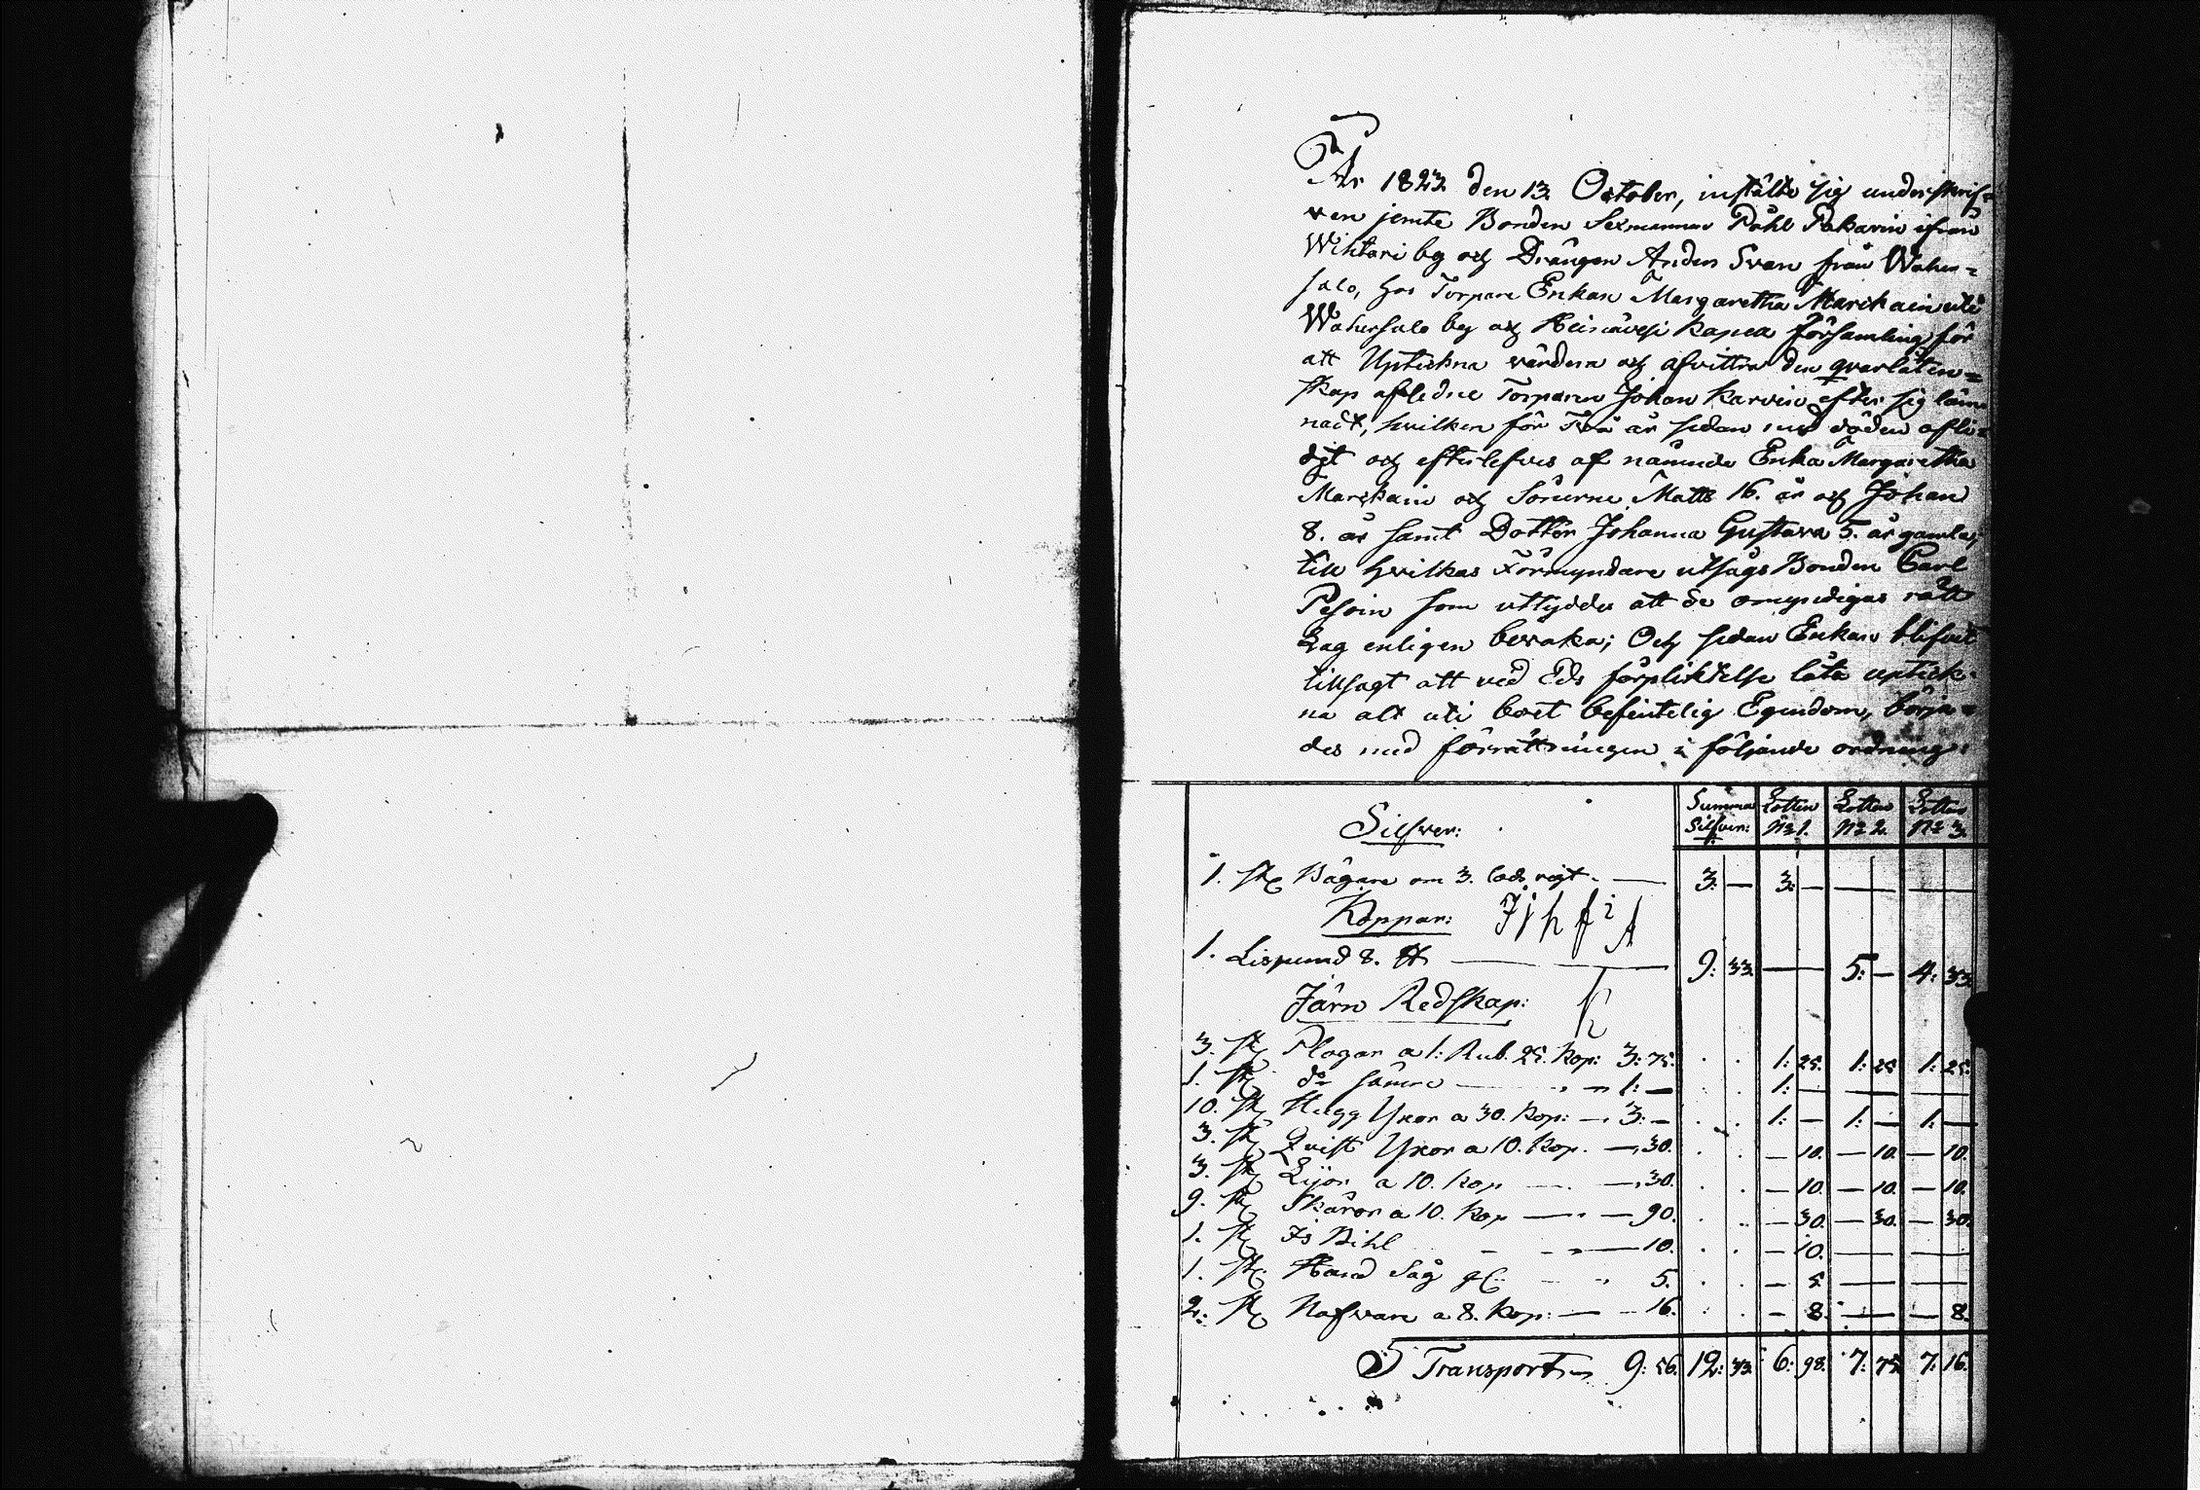 År 1823 den 13 October, instälte sig underskrif=
ven jemte Bonden Sexmannen Påhl Pakarin ifrån
Wihtari by och Drängen Anders Svan från Waher=
salo, hos Torpare Enkan Margaretha Marckain uti
Wahersalo by och Heinävesi Kapea församling för
att Uptekna värdera och afvittra den qvarlåten=
skap afledne Torparen Johan Karvin efter sig läm
nadt, hvilken för Två år sedan med döden afli=
dit och efterlefves af nämnde Enka Margaretha
Marckain och Sönerne Matts 16. år och Johan
8. år samt Dotter Johanna Gustava 5. år gamla,
till hvilkas Förmyndare utsågs Bonden Carl
Pesoin som utlydder att de omyndigas rätt
Lag enligen bevaka; Och sedan Enkan blifvit
tillsagt att ved Eds förpliktelse låta uptek
na alt uti boet befintelig Egendom, börja=
des med förrättningen i följande ordning:
Summa Silfver: Lotten No 1. Lotten No 2. Lotten No 3.
Silfver:
1. st Bägare om 3. lods vigt. — 3: — 3: — — —
Koppar: J j h f i A
1. Lispund 8. ℔ — 9: 33. — 5: — 4: 33.
Järn Redskap: k
3. st Plogar a 1: Rub. 25. Kop: 3: 75. 1: 25. 1: 25 1: 25.
1. st do sämre — 1: — 1: — — —
10. st Hugg Yxor a 30. Kop: — 3: — 1: — 1: — 1: —
3. st Qvist Yxor a 10. Kop. — 30. — 10. — 10. — 10.
3. st Lijor a 10. Kop — 30. — 10. — 10. — 10.
9. st Skäror a 10. Kop — 90. — 30. — 30. — 30.
1. st Is Bihl — 10. — 10. — —
1. st Hand Såg gl: — 5. — 5 — —
2. st Nafvare a 8. Kop: — 16. — 8. — — 8.
Transport 9: 56. 12: 33. 6: 98. 7: 75 7: 16.